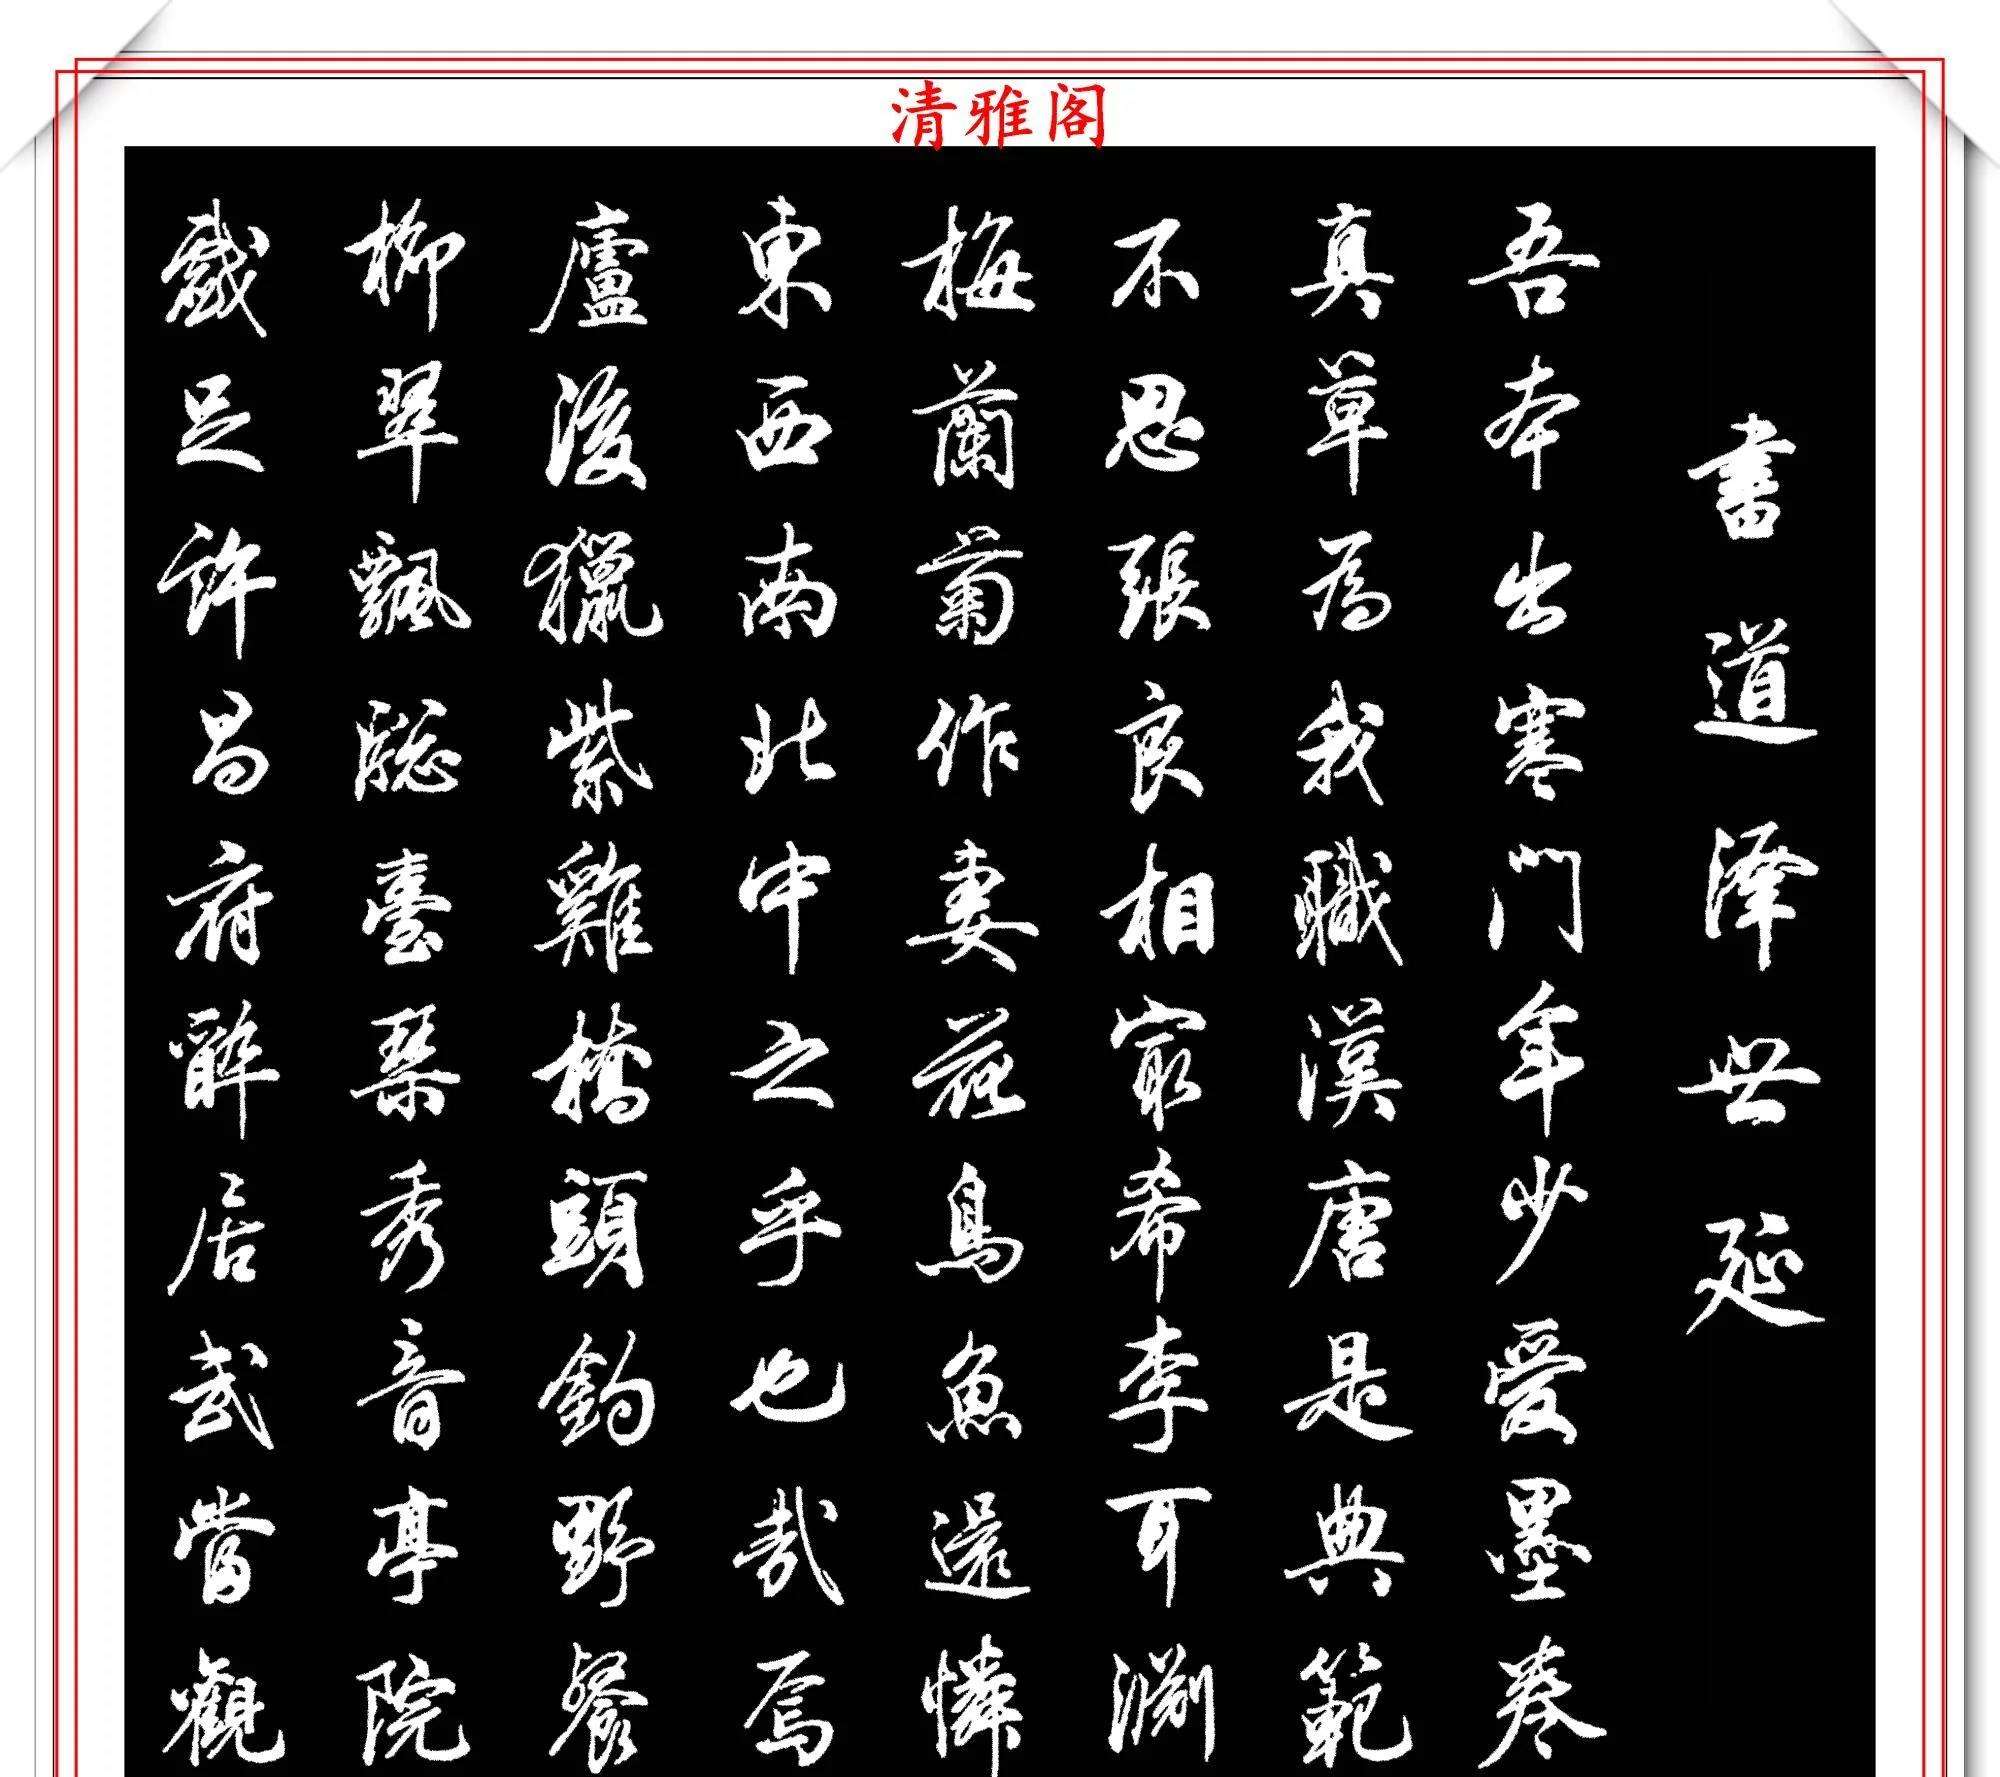 清雅阁
書道澤世延
吾本出寒門年少愛墨卷
真草為我職漢唐是典範
不思張良相寂希李耳淵
梅蘭菊作妻花鳥魚還憐
東西南北中之乎也哉焉
廬後獵紫雞橋頭釣野餐
柳翠飄聽臺琴秀音亭院
戲足許昌府醉居武當觀